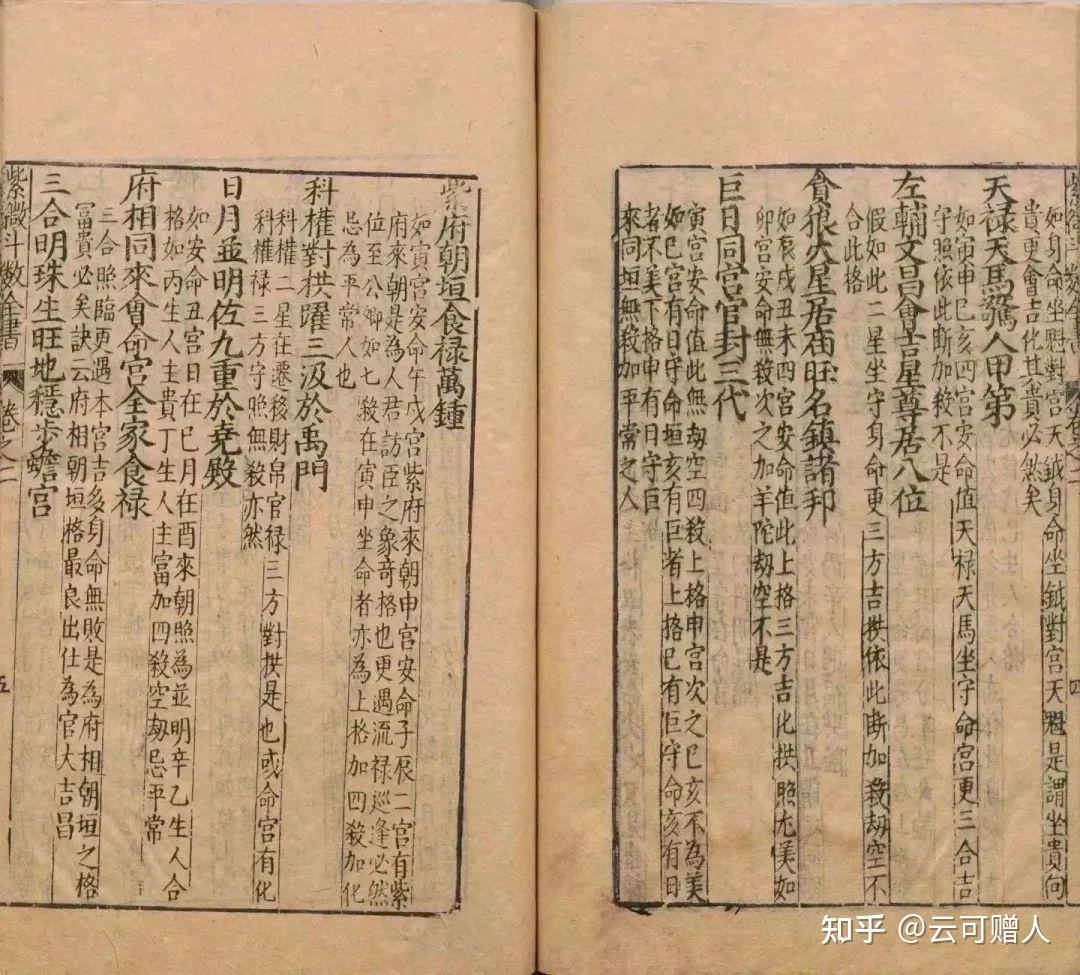 紫微斗數全書
卷之二
四
如身命坐魁對宮天鉞身命坐鉞對宮天魁是謂坐貴向
貴更會吉化其貴必然矣
天禄天馬驚人甲第
如寅申巳亥四宮安命值天禄天馬坐守命宮更三合吉
守照依此斷加殺不是
左輔文昌會吉星尊居八位
假如此二星坐守身命更三方吉拱依此斷加殺劫空不
合此格
貪狼火星居庙旺名鎮諸邦
如辰戌丑未四宮安命值此上格三方吉化拱照尤美如
卯宮安命無殺次之加羊陀劫空不是
巨日同宮官封三代
寅宮安命值此無劫空四殺上格申宮次之巳亥不為美
如巳宮有日守命垣亥有巨者上格巳有巨守命亥有日
者不美下格申有日守巨
來同垣無殺加平常之人
紫府朝垣食禄萬鍾
如寅宮安命午戌宮紫府來朝申宮安命子辰二宮有紫
府來朝是為人君訪臣之象奇格也更遇流禄巡逢必然
位至公卿如七殺在寅申坐命者亦為上格加四殺加化
忌為平常人也
科權對拱躍三汲於禹門
科權二星在遷移財帛官禄三方對拱是也或命宮有化
科權禄三方守照無殺亦然
日月並明佐九重於堯殿
如安命丑宮日在巳月在酉來朝照為並明辛乙生人合
格如丙生人主貴丁生人主富加四殺空劫忌平常
府相同來會命宮全家食禄
三合照臨更遇本宮吉多身命無敗是為府相朝垣之格
富貴必矣訣云府相朝垣格最良出仕為官大吉昌
三合明珠生旺地穩步蟾宮
紫微斗數全書
卷之二
五
知乎 @云可赠人